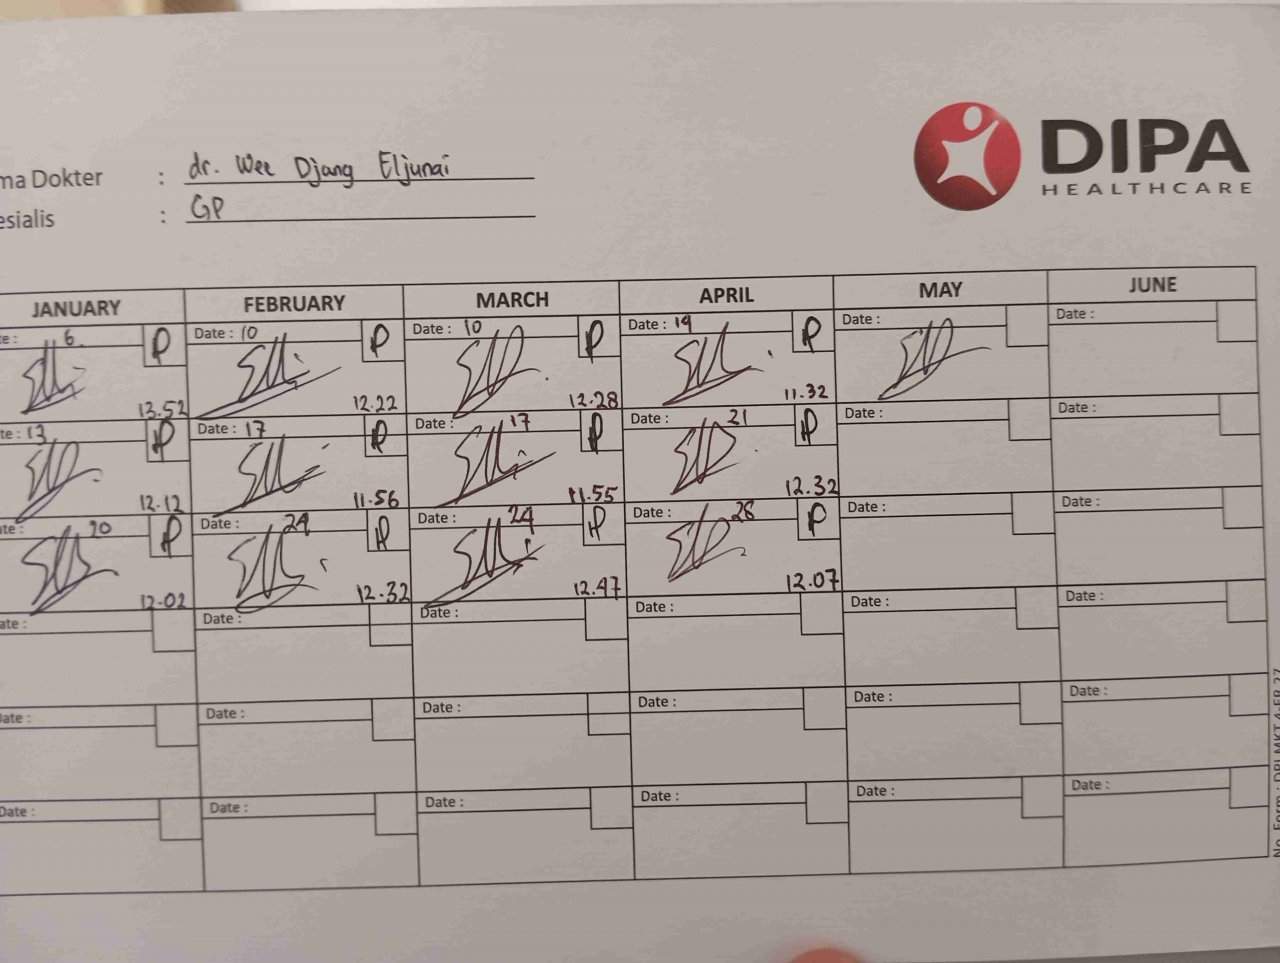 DIPA
HEALTHCARE
ma Dokter : dr. Wee Djang Eljunai
esialis : GP
JANUARY FEBRUARY MARCH APRIL MAY JUNE
te: 6. P Date : 10 P Date : 10 P Date : 14 P Date : Date :
13.52 12.22 12.28 11.32
te : 13 P Date : 17 P Date : 17 P Date : 21 P Date : Date :
12.12 11.56 11.55 12.32
ate : 20 P Date : 24 P Date : 24 P Date : 28 P Date : Date :
12.02 12.32 12.47 12.07
ate : Date : Date : Date : Date : Date :
Date : Date : Date : Date : Date : Date :
Date : Date : Date : Date : Date : Date :